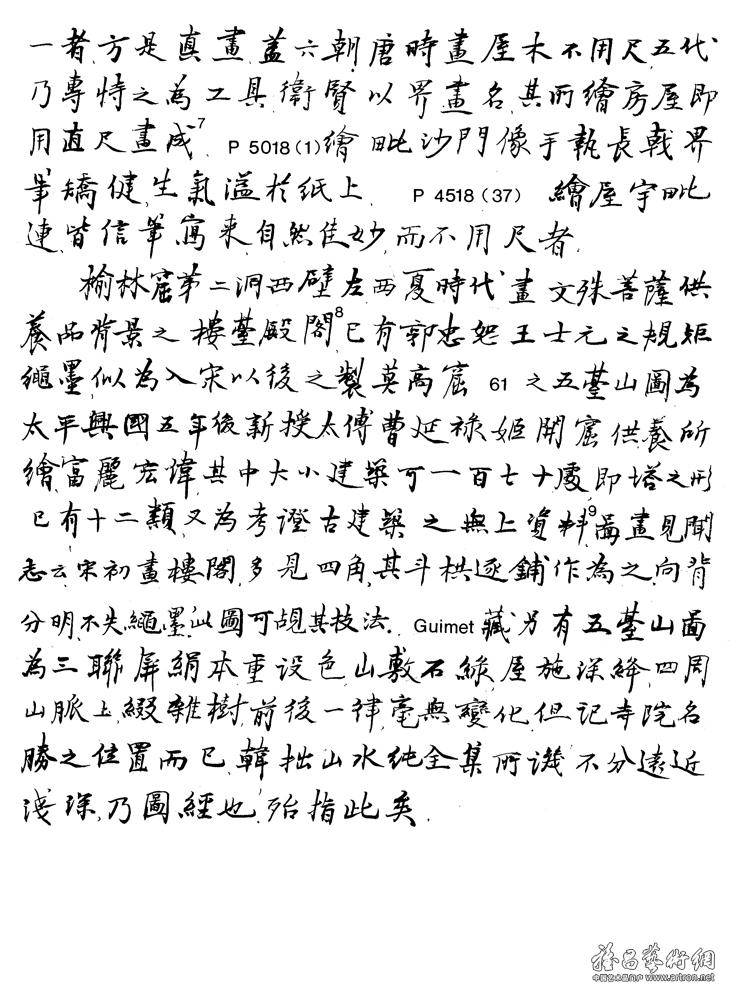 一者、方是真畫、蓋六朝唐時畫屋木不用尺、五代
乃專恃之為工具、衞賢以界畫名、其所繪房屋即
用直尺畫成7. P 5018(1)繪毗沙門像手執長戟界
筆矯健、生氣溢於紙上. P 4518(37) 繪屋宇毗
連、皆信筆寫来、自然佳妙、而不用尺者.
榆林窟第二洞西壁左西夏時代畫文殊菩薩供
養品背景之樓臺殿閣8已有郭忠恕王士元之規矩
繩墨、似為入宋以後之製莫高窟 61 之五臺山圖為
太平興國五年後新授太傅曹延祿姬開窟供養所
繪、富麗宏偉、其中大小建築可一百七十處、即塔之形
已有十二類、又為考證古建築之無上資料9圖畫見聞
志云宋初畫樓閣、多見四角、其斗栱逐鋪作為之、向背
分明、不失繩墨、此圖可覘其技法. Guimet 藏另有五臺山圖
為三聯屏絹本重设色山敷石綠、屋施深絳、四周
山脈上、綴雜樹、前後一律、毫無變化、但記寺院名
勝之位置而已、韓拙山水純全集所譏不分遠近
淺深、乃圖經也、殆指此矣.
雅昌藝術網
中国艺术品门户 www.artron.net